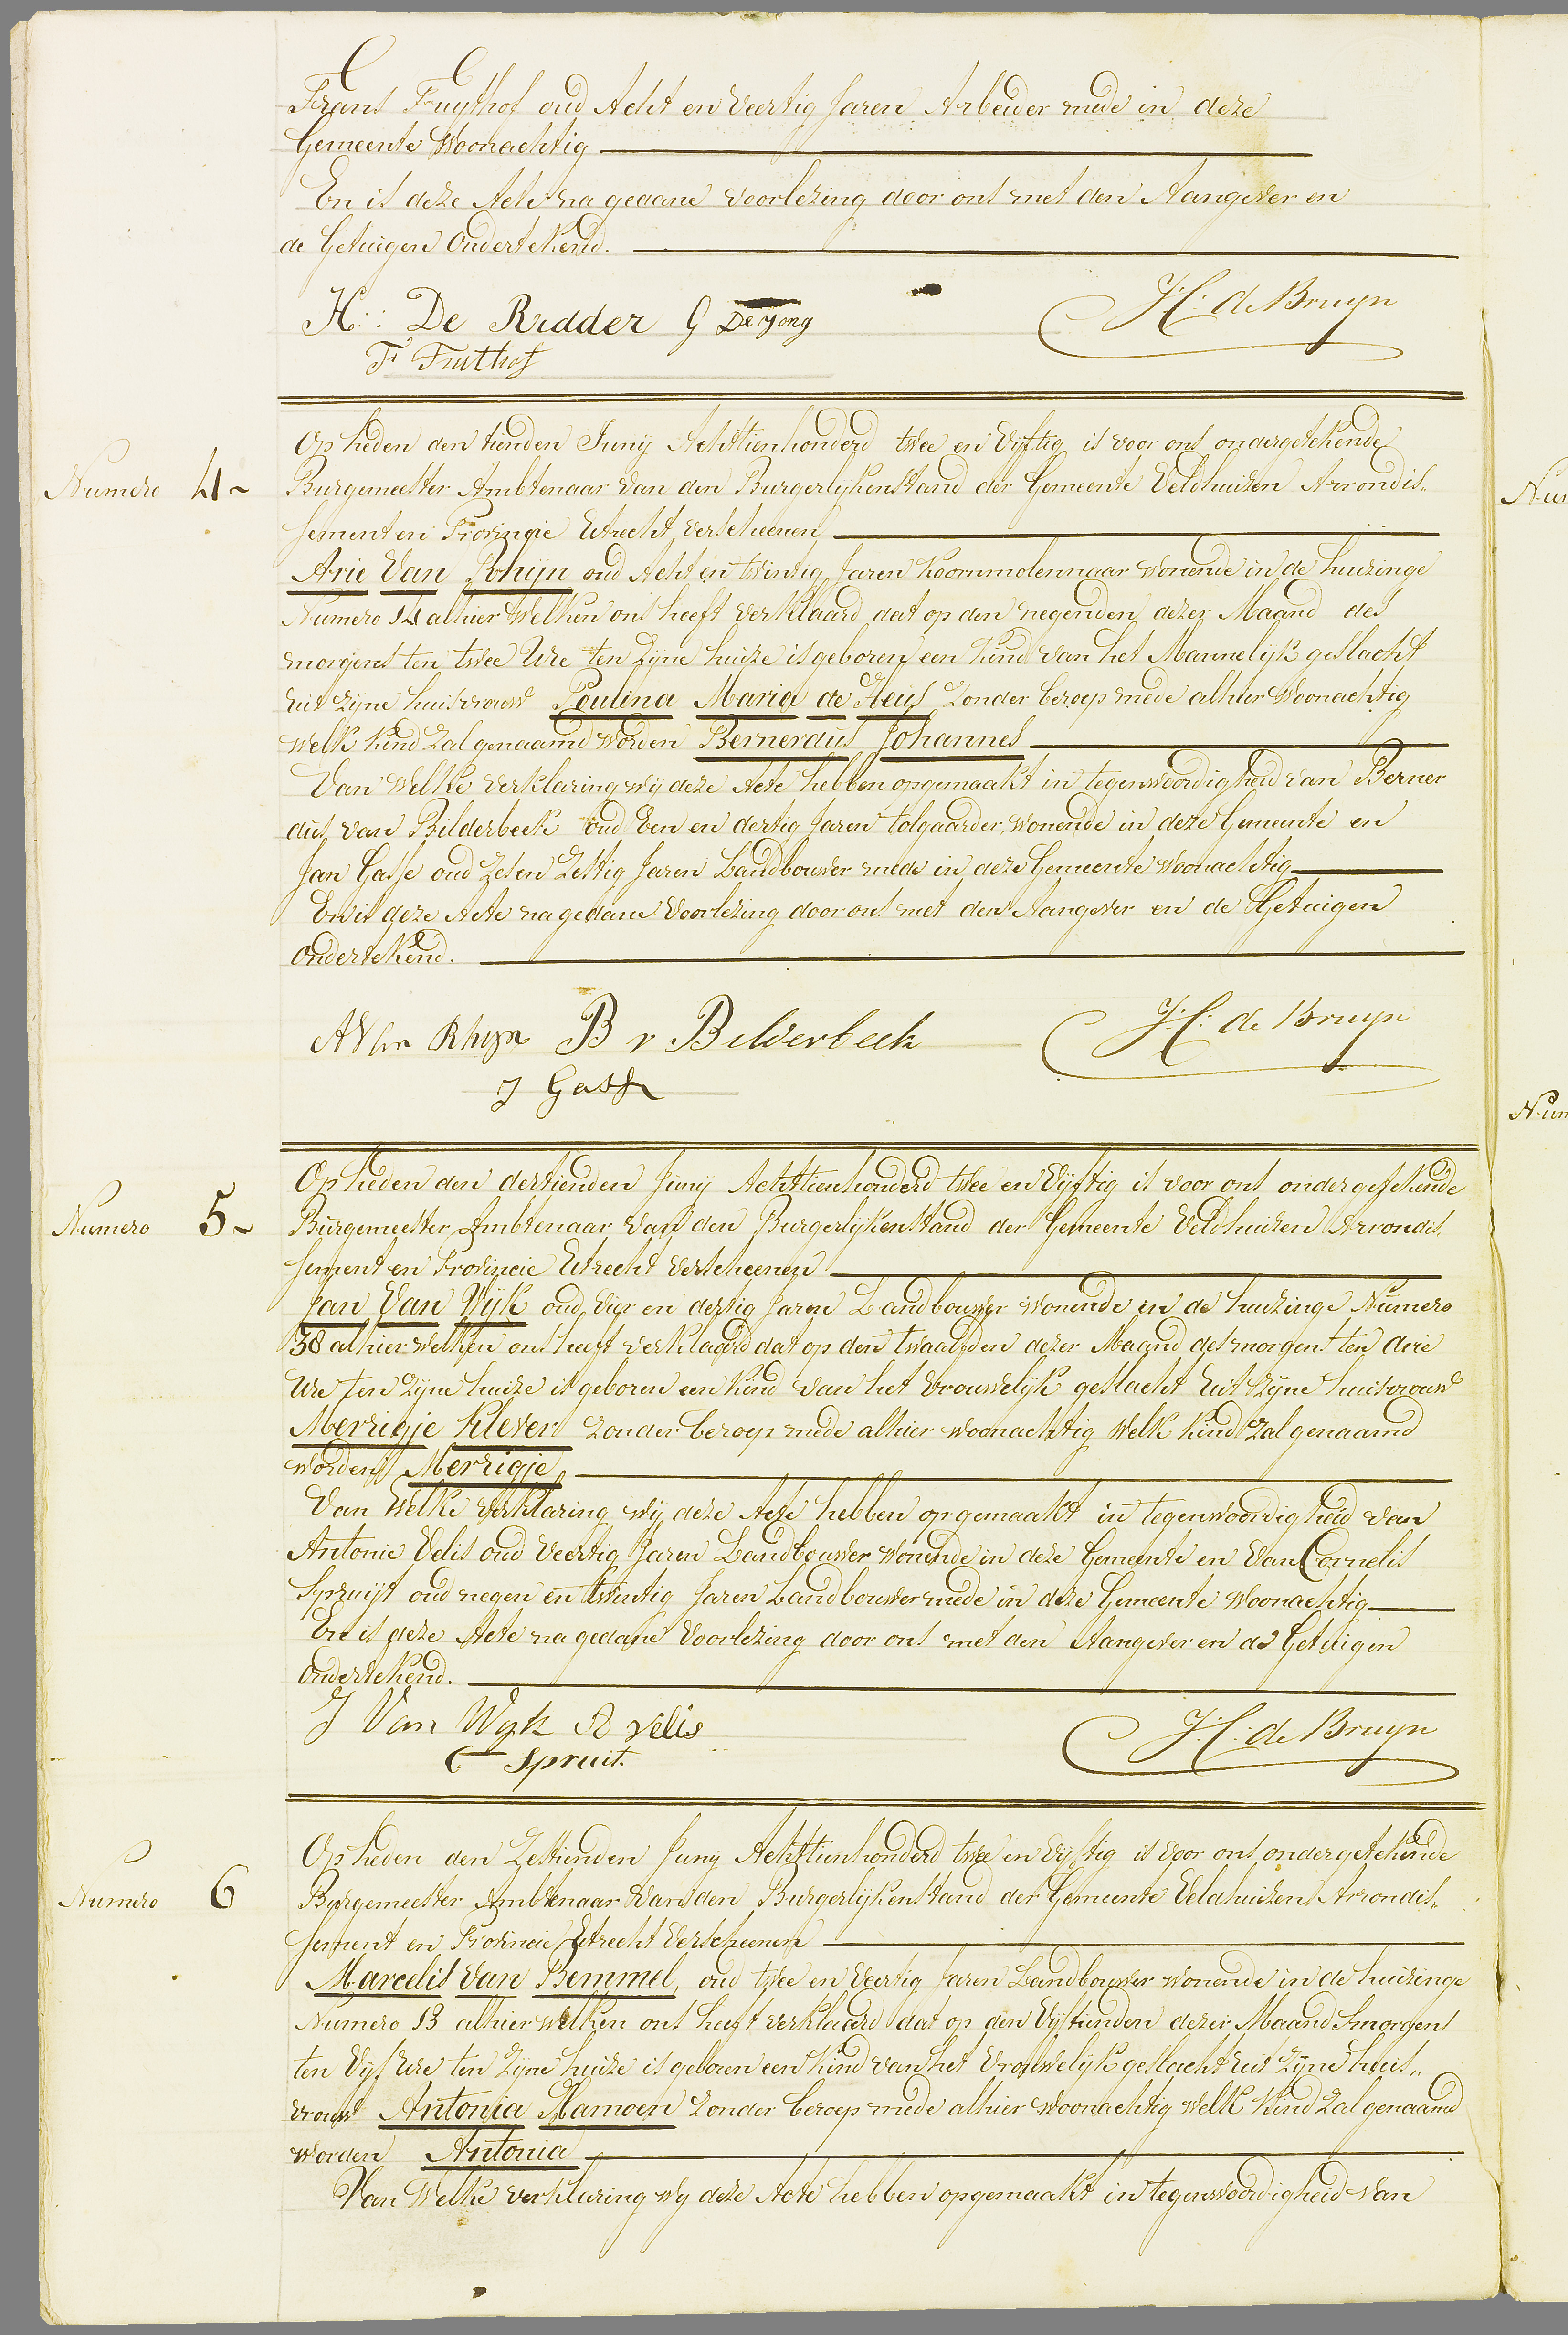 Frans Fuythof oud Acht en Veertig Jaren Arbeider mede in deze
Gemeente Woonachtig
En is deze Acte na gedane voorlezing door ons met den Aangever en
de Getuigen Ondertekend.
H: De Ridder G De Jong H: de Bruyn
F Fuithof
Op heden den tienden Junij Achttienhonderd twee en Vijftig is voor ons ondergetekende
Numero 4 ~ Burgemeester Ambtenaar Van den Burgerlijkenstand der Gemeente Veldhuizen Arrondis„
sement en Provincie Utrecht, verscheenen
Arie Van Rhijn oud Acht en twintig Jaren Koornmolennaar Wonende in de huizinge
Numero 14 alhier Welken ons heeft Verklaard dat op den negenden dezer Maand des
morgens ten twee Ure ten Zijne huize is geboren een kind van het Mannelijk geslacht
uit zijne huisvrouw Paulina Maria de Heus Zonder beroep mede alhier Woonachtig
Welk kind Zal genaamd worden Bernerdus Johannes
Van Welke verklaring wij deze Acte hebben opgemaakt in tegenwoordigheid van Berner
dus van Bilderbeek oud Een en dertig Jaren tolgaarder, Wonende in deze Gemeente en
Jan Gasse oud Zes en Zestig Jaren Landbouwer mede in deze Gemeente Woonachtig
En is deze Acte na gedane Voorlezing door ons met den Aangever en de Getuigen
Ondertekend.
A Van Rhyn B v Bilderbeek H: de Bruyn
J Gasse
Op heden den dertienden Junij Achttienhonderd twee en Vijftig is voor ons ondergetekende
Numero 5 ~ Burgemeester Ambtenaar Van den Burgerlijkenstand der Gemeente Veldhuizen Arrondis
sement en Provincie Utrecht Verscheenen
Jan Van Wijk oud Vier en dertig Jaren Landbouwer Wonende in de huizinge Numero
38 alhier Welken ons heeft verklaard dat op den twaalfden dezer Maand des morgens ten drie
Ure ten Zijne huize is geboren een kind van het Vrouwelijk geslacht Uit Zijne huisvrouw
Merrigje Klever Zonder beroep mede alhier Woonachtig Welk kind Zal genaamd
worden Merrigje
Van Welke Verklaring wij deze Acte hebben opgemaakt in tegenwoordigheid van
Antonie Velis oud Veertig Jaren Landbouwer Wonende in deze Gemeente en Van Cornelis
Spruijt oud negen en twintig Jaren Landbouwer mede in deze Gemeente Woonachtig
En is deze Acte na gedane Voorlezing door ons met den Aangever en de Getuigen
Ondertekend.
J Van Wyk A velis H: de Bruyn
C Spruit.
Op heden den Zestienden Junij Achttienhonderd twee en Vijftig is Voor ons ondergetekende
Numero 6 Burgemeester Ambtenaar Van den Burgerlijkenstand der Gemeente Veldhuizen Arrondis„
sement en Provincie Utrecht Verscheenen
Marcelis Van Bemmel, oud twee en Veertig Jaren Landbouwer Wonende in de huizinge
Numero 13 alhier Welken ons heeft Verklaard dat op den Vijftienden dezer Maand smorgens
ten Vijf Ure ten Zijne huize is geboren een kind van het Vrouwelijk geslacht uit Zijne huis„
vrouw Antonia Mamoen Zonder beroep mede alhier Woonachtig Welk Kind Zal genaamd
worden Antonia
Van Welke verklaring wy deze Acte hebben opgemaakt in tegenwoordigheid van